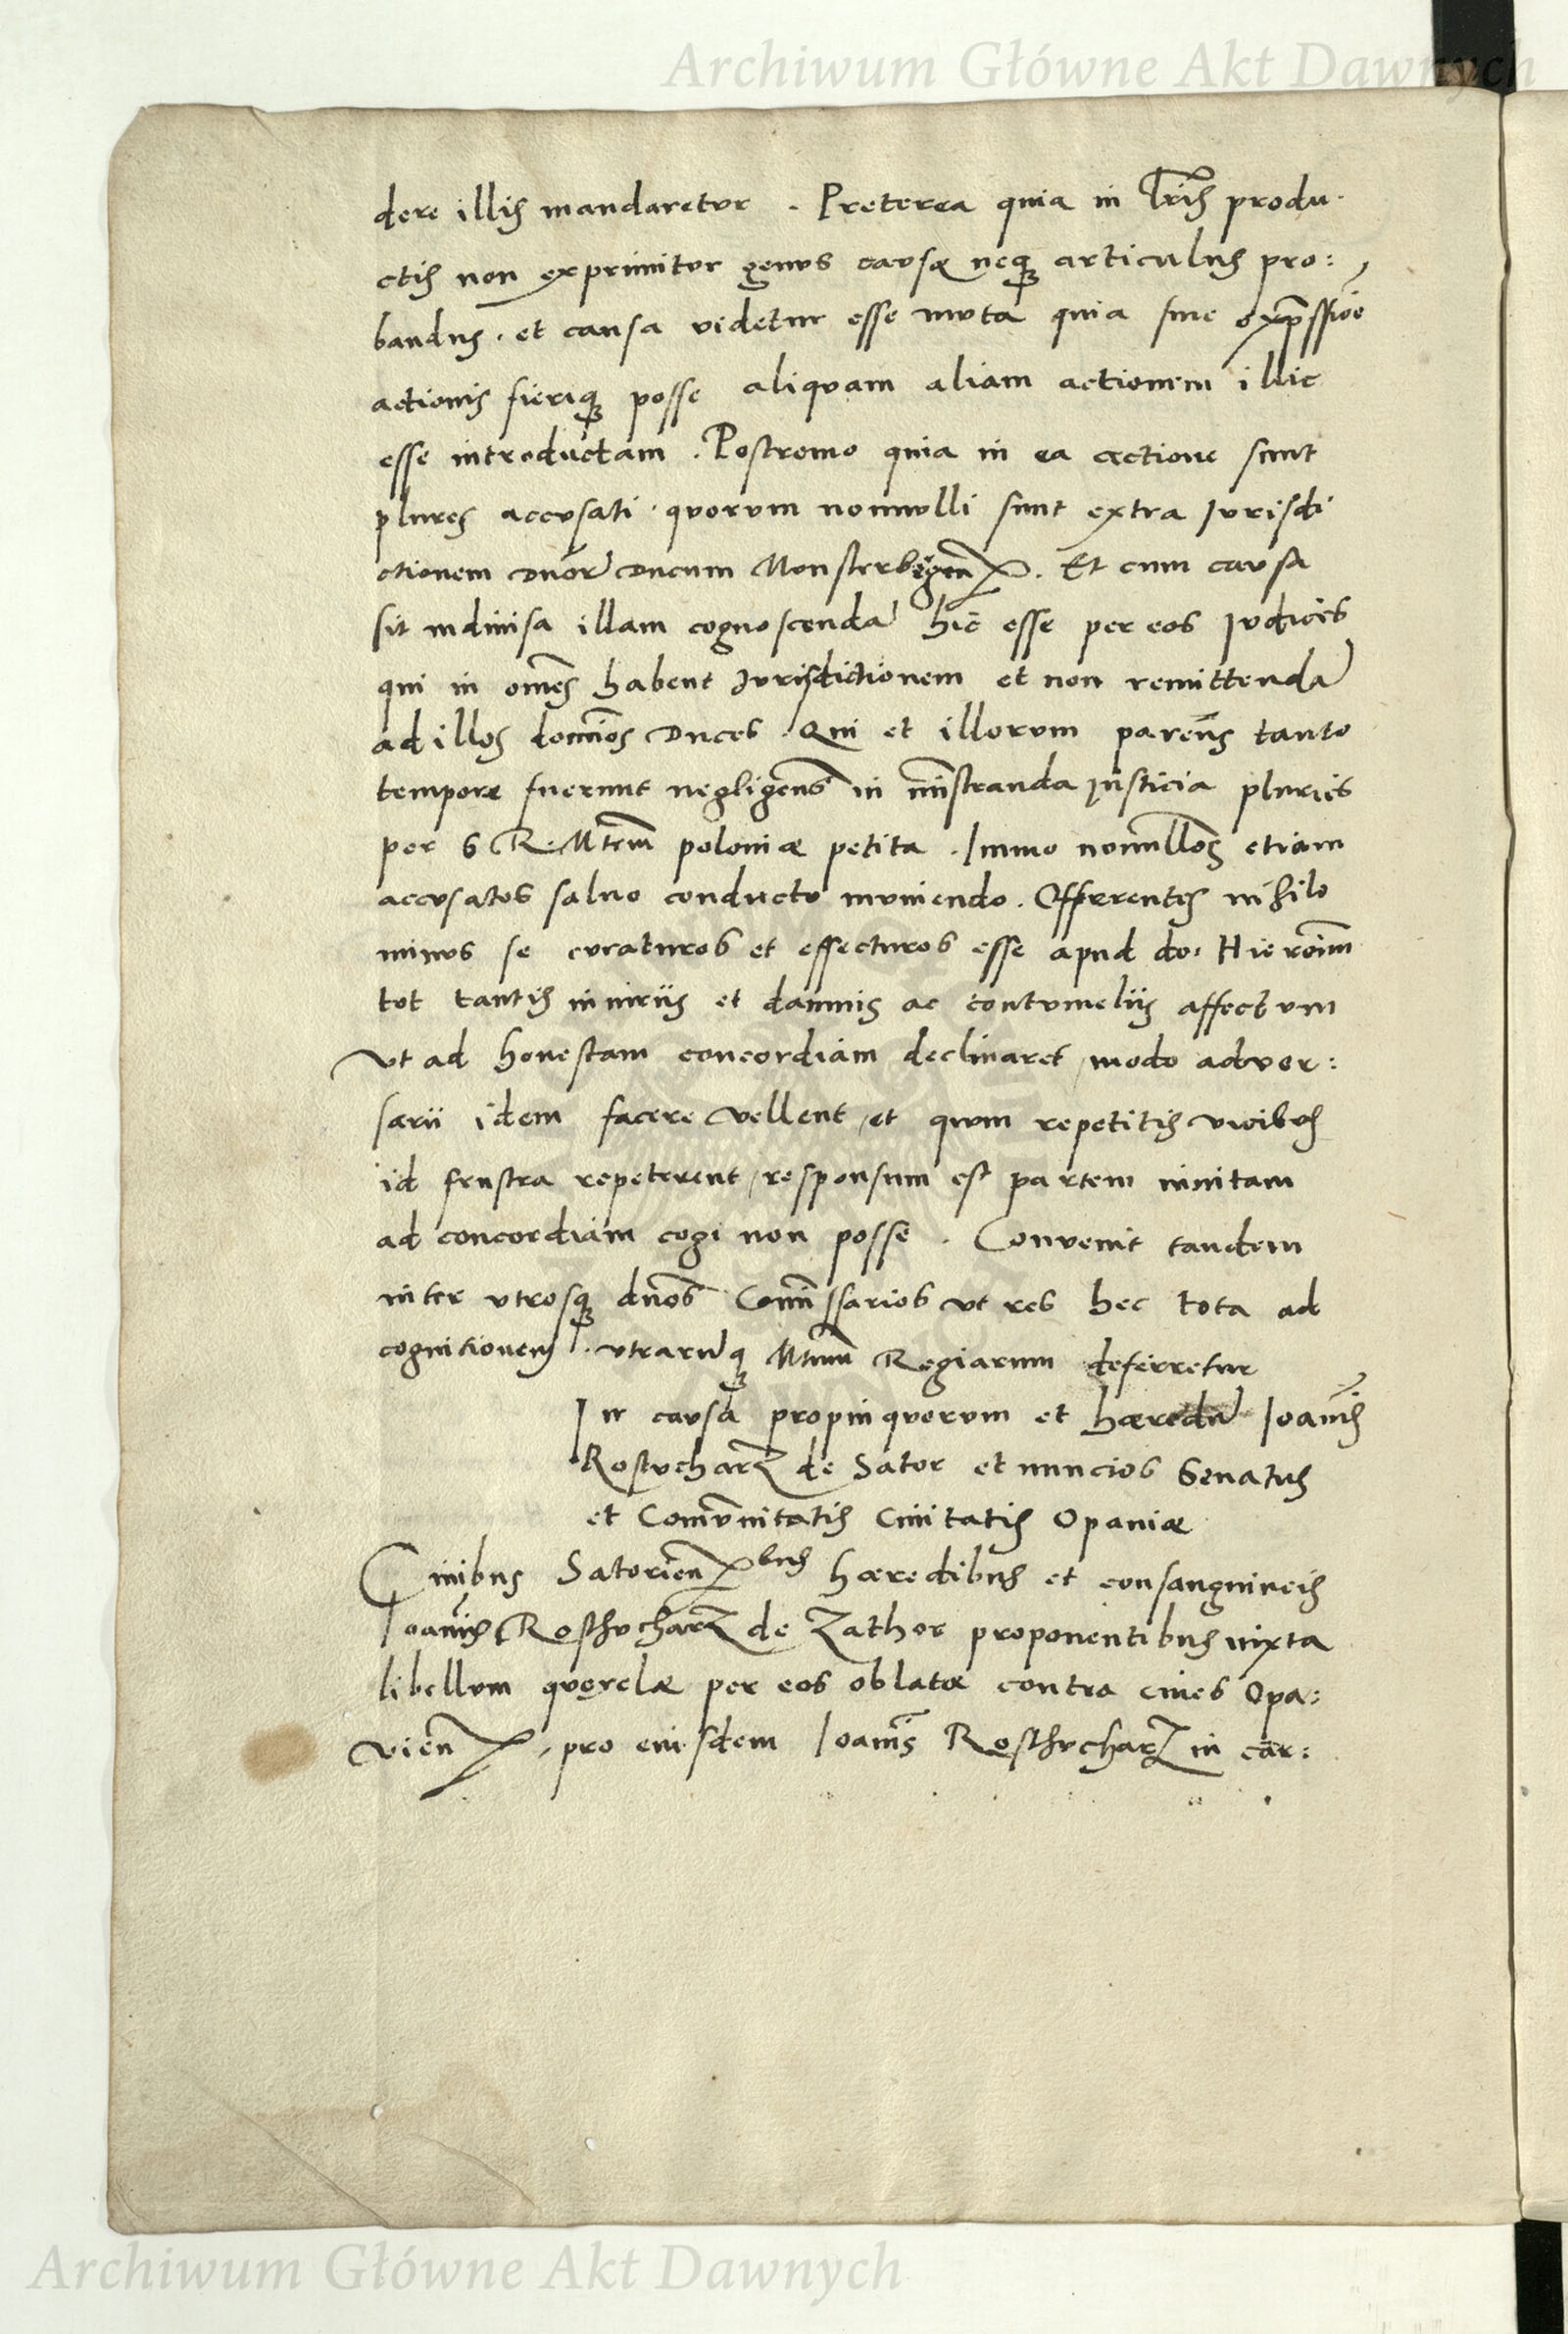 Archiwum Główne Akt Dawnych
dere illis mandaretur . Preterea quia in Lris produ-
ctis non exprimitur genus causæ neq articulus pro:
bandus . et causa videtur esse muta quia sine expssioe
actionis fieriq posse aliquam aliam actionem illic
esse introductam . Postremo quia in ea actione sunt
plures accusati . quorum nonnulli sunt extra Jurisdi
ctionem Dnor Ducum Monsterbergen . Et cum causa
sit indiuisa illam cognoscenda hic esse per eos Judices
qui in omes habent Jurisdictionem et non remittenda
ad illos dominos Duces . Qui et illorum parens tanto
tempore fuerunt negligens in ministranda justicia pluries
per S R. Mtem poloniæ petita . Immo nonnullos etiam
accusatos saluo conductu muniendo . Offerentes nihilo
minus se curaturos et effecturos esse apud do: Hieronim
tot tantis iniuriis et damnis ac contumeliis affectum
ut ad honestam concordiam declinaret , modo aduer:
sarii idem facere vellent , et quum repetitis vicibus
id frustra repeterent , responsum est partem inuitam
ad concordiam cogi non posse . Conuenit tandem
inter utrosq dnos Comissarios ut res hec tota ad
cognitionem . utraruq Mtum Regiarum deferretur
In causa propinquorum et hæredu Joannis
Rostucharz de Sator et nuncios Senatus
et Comunitatis Ciuitatis Opauiæ
Ciuibus Satorien bus hæredibus et consanguineis
Joannis Rosthucharz de Zathor proponentibus iuxta
libellum querelæ per eos oblatæ contra ciues Opa:
uien , pro eiusdem Joannis Rosthucharz in car:
Archiwum Główne Akt Dawnych